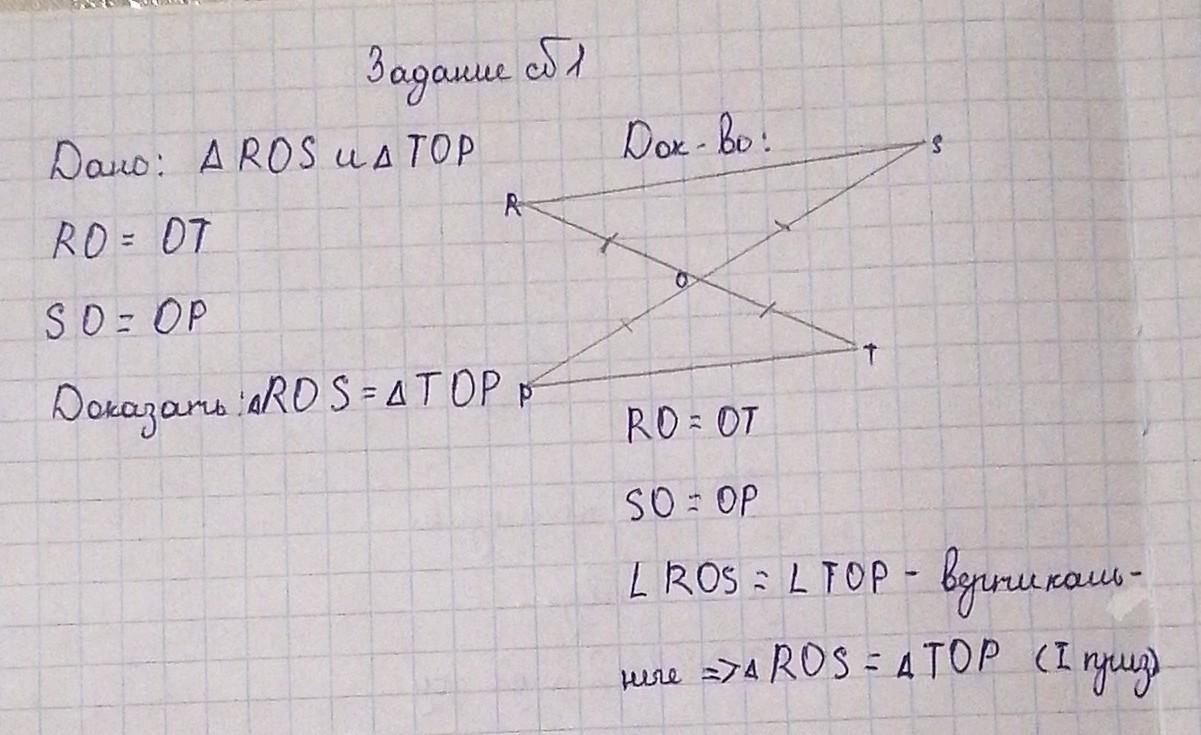 Задание №1
Дано: △ROS и △TOP
RO = OT
SO = OP
Доказать: △ROS = △TOP
Док-во:
S
R
O
T
P
RO = OT
SO = OP
∠ROS = ∠TOP - вертикаль-
ные => △ROS = △TOP (I приз)